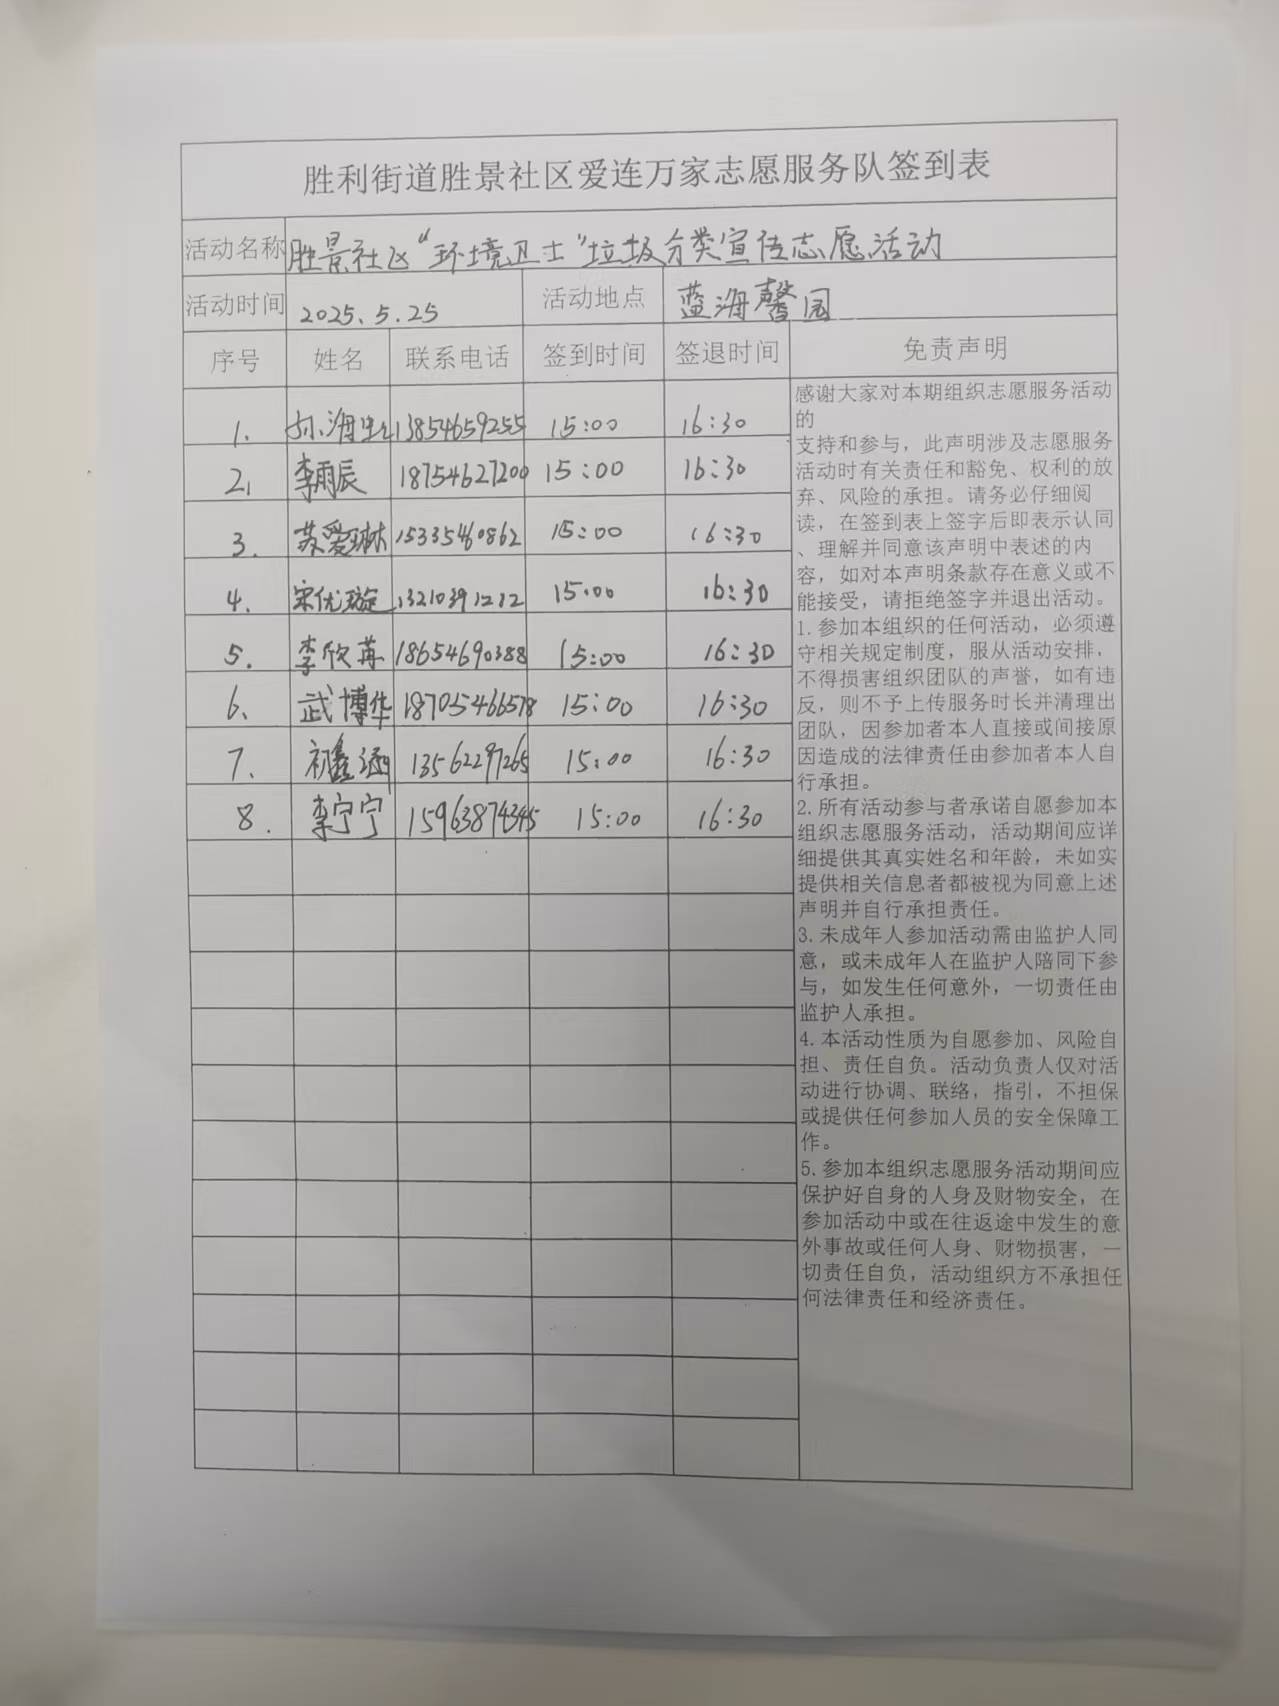 胜利街道胜景社区爱连万家志愿服务队签到表
活动名称 胜景社区“环境卫士”垃圾分类宣传志愿活动
活动时间 2025.5.25 活动地点 蓝海馨园
序号 姓名 联系电话 签到时间 签退时间 免责声明
1. 孙海 13854659255 15:00 16:30
2. 李雨辰 18754627200 15:00 16:30
3. 苏爱琳 15335460862 15:00 16:30
4. 宋优璇 13210391212 15:00 16:30
5. 李欣苒 18654690388 15:00 16:30
6. 武博华 18705466578 15:00 16:30
7. 初鑫涵 13562297265 15:00 16:30
8. 李宁宁 15963874345 15:00 16:30
感谢大家对本期组织志愿服务活动
的
支持和参与，此声明涉及志愿服务
活动时有关责任和豁免、权利的放
弃、风险的承担。请务必仔细阅
读，在签到表上签字后即表示认同
、理解并同意该声明中表述的内
容，如对本声明条款存在意义或不
能接受，请拒绝签字并退出活动。
1.参加本组织的任何活动，必须遵
守相关规定制度，服从活动安排，
不得损害组织团队的声誉，如有违
反，则不予上传服务时长并清理出
团队，因参加者本人直接或间接原
因造成的法律责任由参加者本人自
行承担。
2.所有活动参与者承诺自愿参加本
组织志愿服务活动，活动期间应详
细提供其真实姓名和年龄，未如实
提供相关信息者都被视为同意上述
声明并自行承担责任。
3.未成年人参加活动需由监护人同
意，或未成年人在监护人陪同下参
与，如发生任何意外，一切责任由
监护人承担。
4.本活动性质为自愿参加、风险自
担、责任自负。活动负责人仅对活
动进行协调、联络，指引，不担保
或提供任何参加人员的安全保障工
作。
5.参加本组织志愿服务活动期间应
保护好自身的人身及财物安全，在
参加活动中或在往返途中发生的意
外事故或任何人身、财物损害，一
切责任自负，活动组织方不承担任
何法律责任和经济责任。